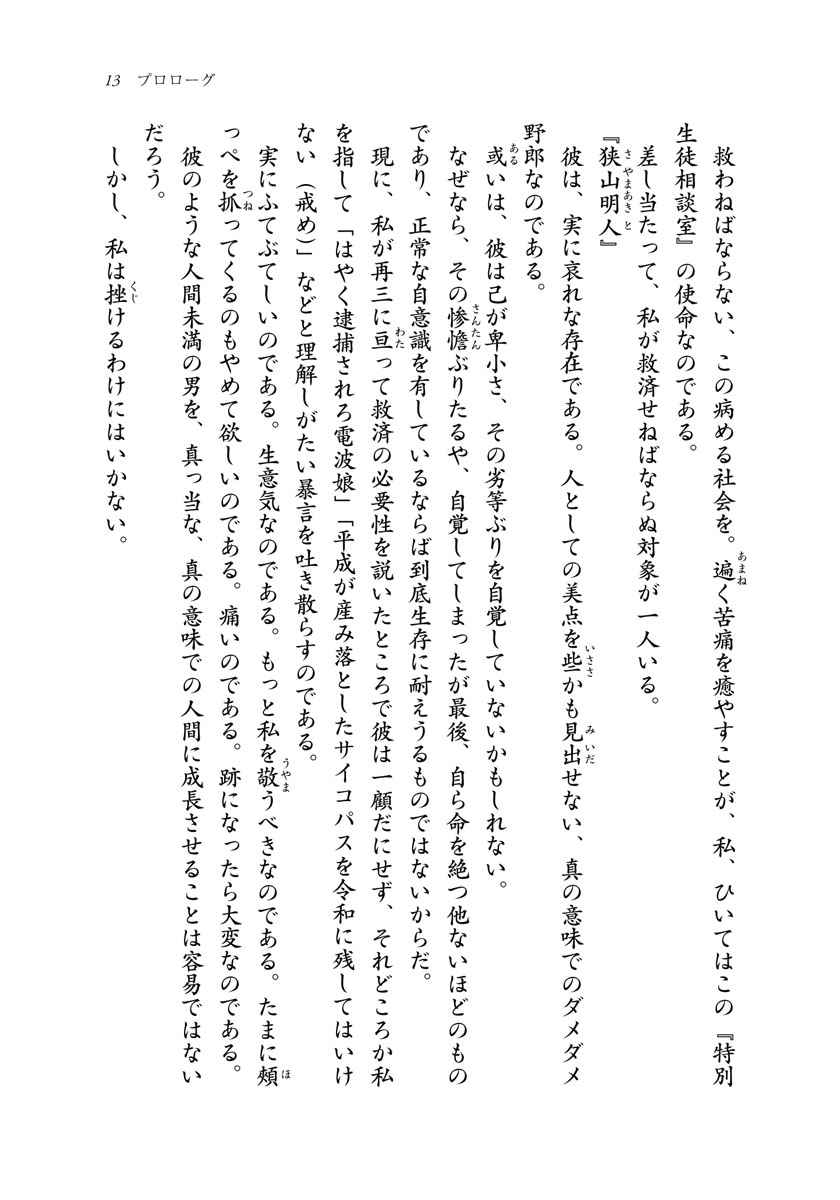 13 プロローグ
救わねばならない、この病める社会を。遍く苦痛を癒やすことが、私、ひいてはこの『特別
生徒相談室』の使命なのである。
差し当たって、私が救済せねばならぬ対象が一人いる。
『狭山明人』
彼は、実に哀れな存在である。人としての美点を些かも見出せない、真の意味でのダメダメ
野郎なのである。
或いは、彼は己が卑小さ、その劣等ぶりを自覚していないかもしれない。
なぜなら、その惨憺ぶりたるや、自覚してしまったが最後、自ら命を絶つ他ないほどのもの
であり、正常な自意識を有しているならば到底生存に耐えうるものではないからだ。
現に、私が再三に亘って救済の必要性を説いたところで彼は一顧だにせず、それどころか私
を指して「はやく逮捕されろ電波娘」「平成が産み落としたサイコパスを令和に残してはいけ
ない（戒め）」などと理解しがたい暴言を吐き散らすのである。
実にふてぶてしいのである。生意気なのである。もっと私を敬うべきなのである。たまに頰
っぺを抓ってくるのもやめて欲しいのである。痛いのである。跡になったら大変なのである。
彼のような人間未満の男を、真っ当な、真の意味での人間に成長させることは容易ではない
だろう。
しかし、私は挫けるわけにはいかない。